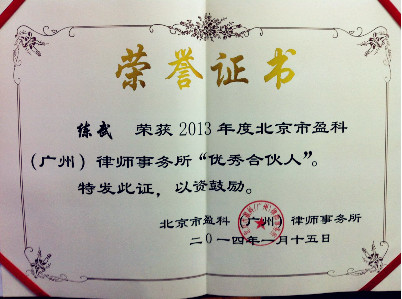 荣誉证书
练武 荣获2013年度北京市盈科
（广州）律师事务所“优秀合伙人”。
特发此证，以资鼓励。
北京市盈科（广州）律师事务所
二〇一四年一月十五日